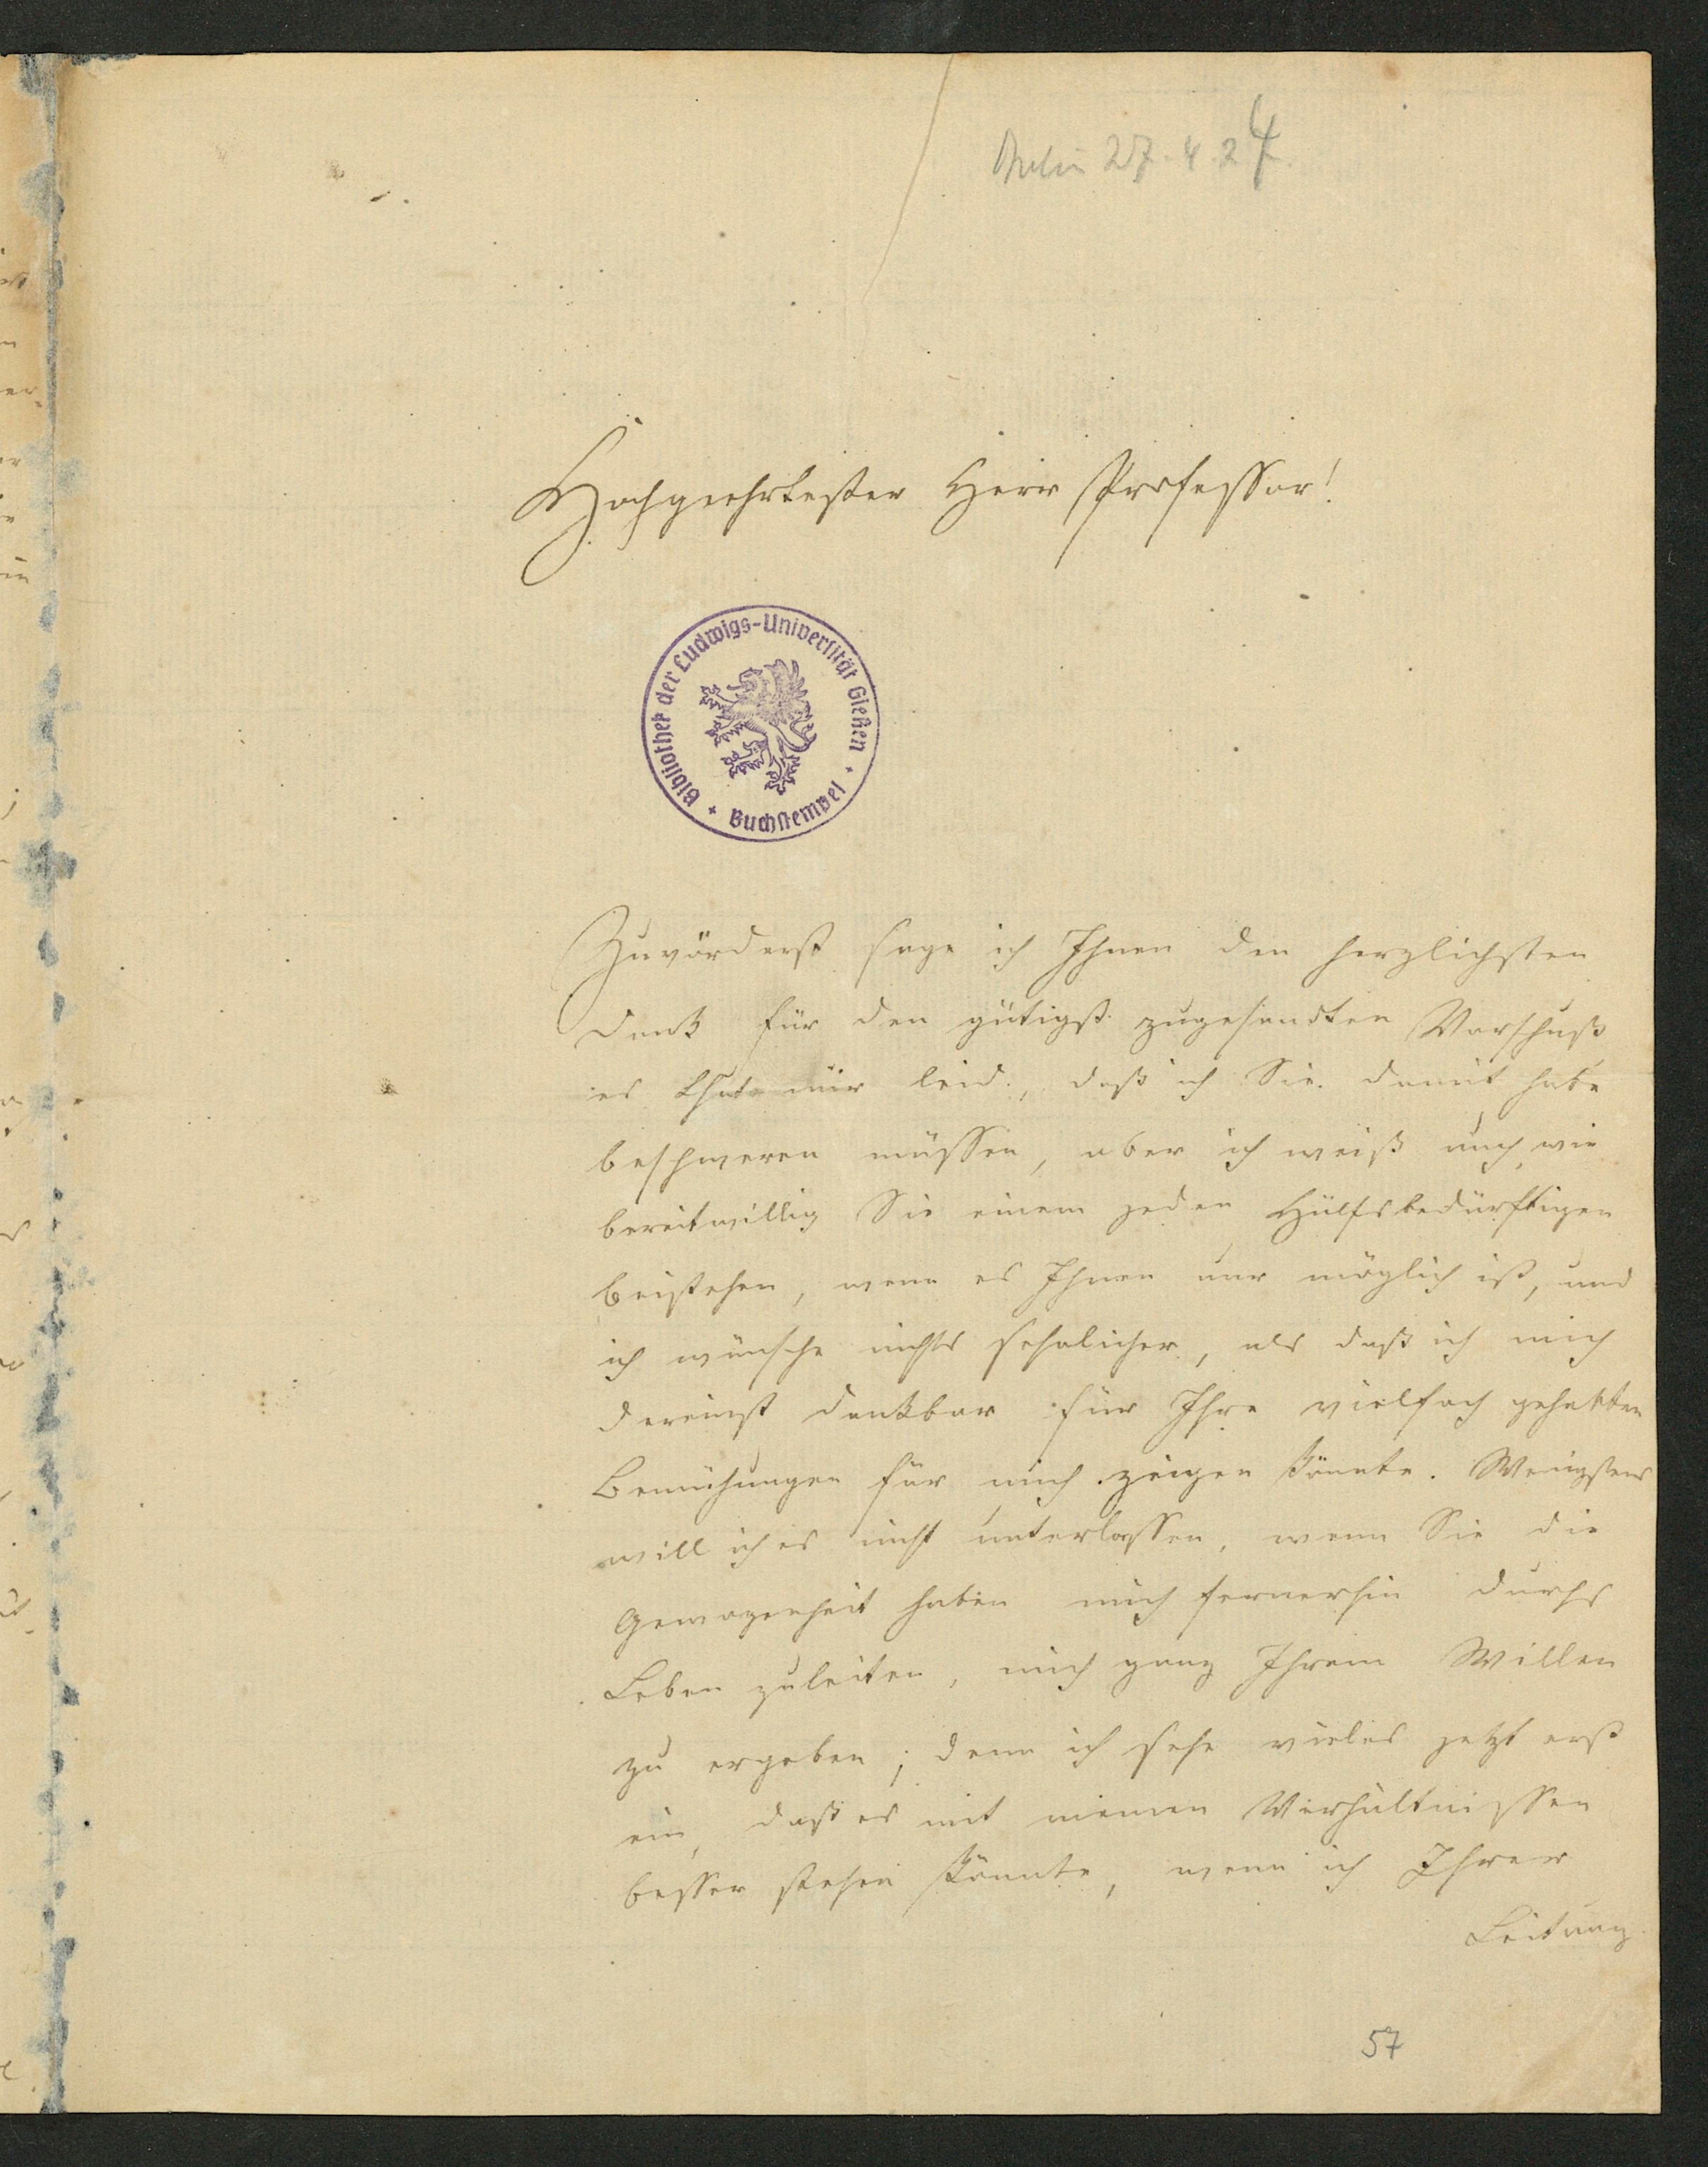 Berlin 27.4.24
Hochgeehrtester Herr Professor!
Bibliothek der Ludwigs-Universität Gießen
Buchstempel
Zuvörderst sage ich Ihnen den herzlichsten
Dank für den gütigst zugesandten Vorschuß
es thut mir leid, daß ich Sie damit habe
beschweren müssen, aber ich weiß auch, wie
bereitwillig Sie einem jeden Hülfsbedürftigen
beistehen, wenn es Ihnen nur möglich ist, und
ich wünsche nichts sehnlicher, als daß ich mich
dereinst dankbar für Ihre vielfach gehabten
Bemühungen für mich zeigen könnte. Wenigstens
will ich es nicht unterlassen, wenn Sie die
Gewogenheit haben mich fernerhin durchs
Leben zuleiten, mich ganz Ihrem Willen
zu ergeben; denn ich sehe vieles jetzt erst
ein, daß es mit meinen Verhältnissen
besser stehen könnte, wenn ich Ihrer
Leitung
57